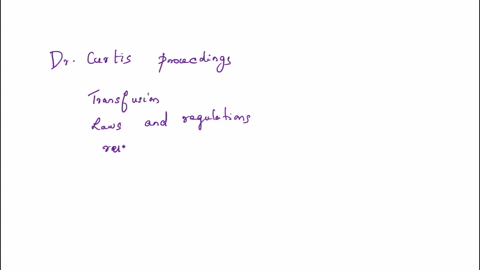 Dr. Curtis proceedings
Transfusion
Laws and regulations